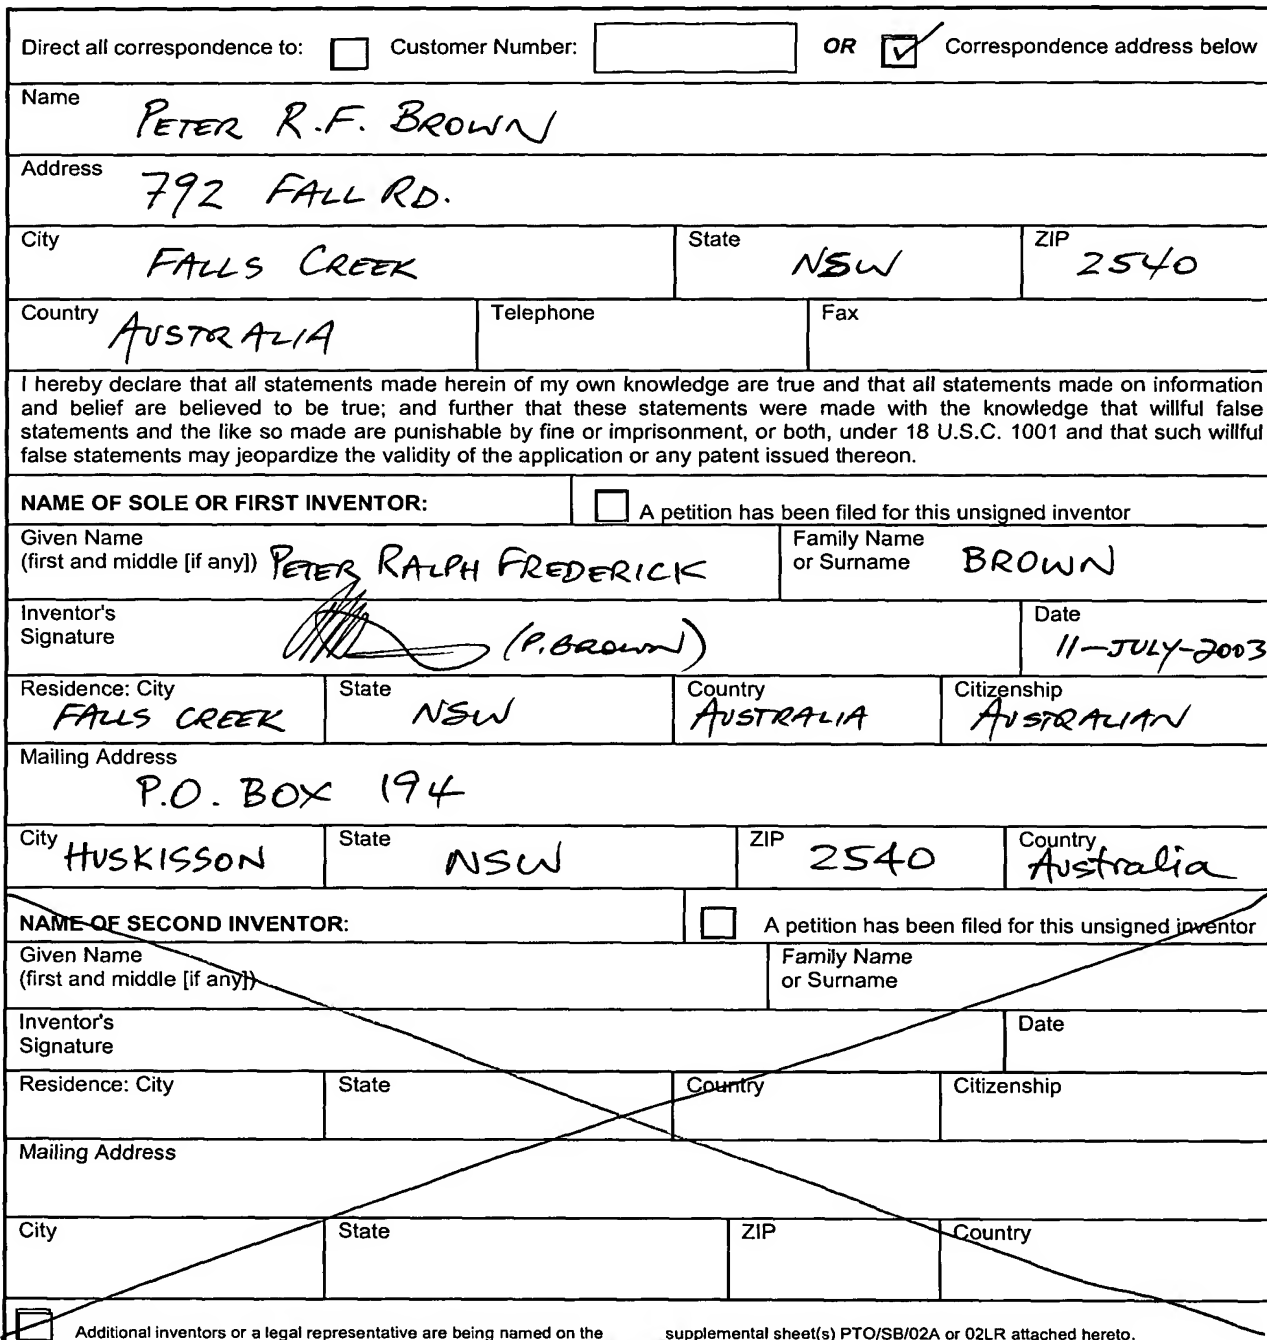 Direct all correspondence to: Customer Number: OR Correspondence address below
Name
PETER R.F. BROWN
Address
792 FALL RD.
City State ZIP
FALLS CREEK NSW 2540
Country Telephone Fax
AUSTRALIA
I hereby declare that all statements made herein of my own knowledge are true and that all statements made on information
and belief are believed to be true; and further that these statements were made with the knowledge that willful false
statements and the like so made are punishable by fine or imprisonment, or both, under 18 U.S.C. 1001 and that such willful
false statements may jeopardize the validity of the application or any patent issued thereon.
NAME OF SOLE OR FIRST INVENTOR: A petition has been filed for this unsigned inventor
Given Name Family Name
(first and middle [if any]) PETER RALPH FREDERICK or Surname BROWN
Inventor's Date
Signature (P. BROWN) 11-JULY-2003
Residence: City State Country Citizenship
FALLS CREEK NSW AUSTRALIA AUSTRALIAN
Mailing Address
P.O. BOX 194
City HUSKISSON State NSW ZIP 2540 Country Australia
NAME OF SECOND INVENTOR: A petition has been filed for this unsigned inventor
Given Name Family Name
(first and middle [if any]) or Surname
Inventor's Date
Signature
Residence: City State Country Citizenship
Mailing Address
City State ZIP Country
Additional inventors or a legal representative are being named on the supplemental sheet(s) PTO/SB/02A or 02LR attached hereto.